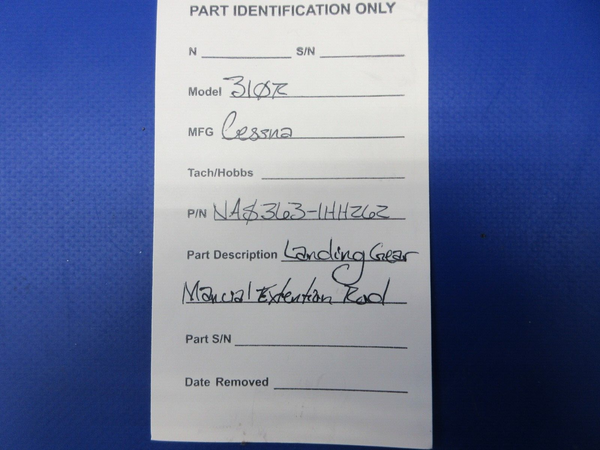 PART IDENTIFICATION ONLY
N S/N
Model 310R
MFG Cessna
Tach/Hobbs
P/N NAS363-1HH262
Part Description Landing Gear
Manual Extention Rod
Part S/N
Date Removed